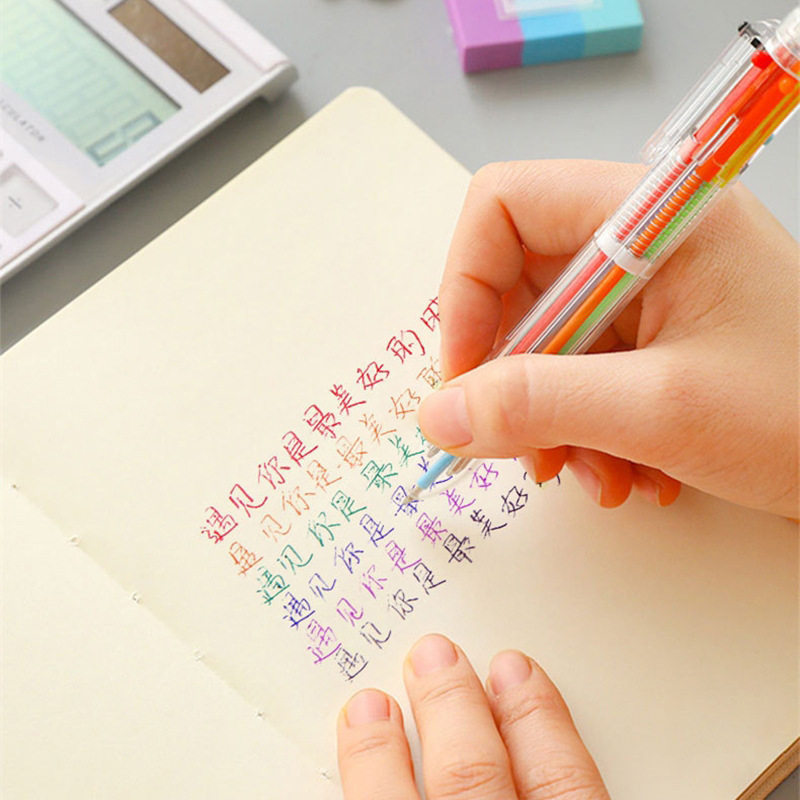 遇见你是最美好的
遇见你是最美好的
遇见你是最美
遇见你是最
遇见你是最美好
遇见你是最美好